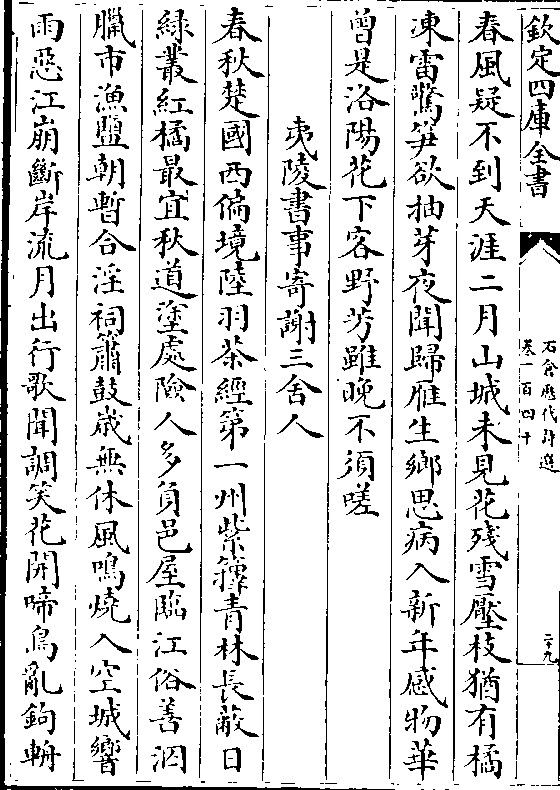 欽定四庫全書
石倉歷代詩選
卷一百四十
二十九
春風疑不到天涯二月山城未見花殘雪壓枝猶有橘
凍雷驚筍欲抽芽夜聞歸雁生鄉思病入新年感物華
曾是洛陽花下客野芳雖晚不須嗟
夷陵書事寄謝三舍人
春秋楚國西偏境陸羽茶經第一州紫籜青林長蔽日
綠叢紅橘最宜秋道塗處險人多負邑屋臨江俗善泅
臘市漁鹽朝暫合淫祠簫鼓歲無休風鳴燒入空城響
雨惡江崩斷岸流月出行歌聞調笑花開啼鳥亂鉤輈